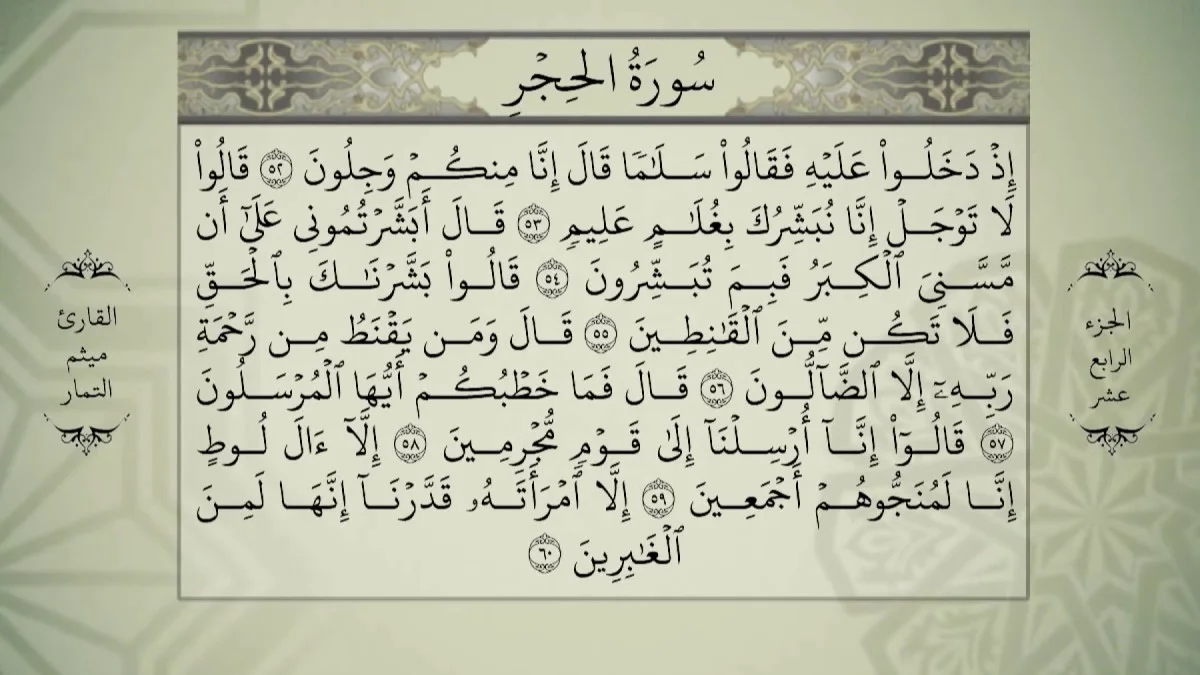 سُورَةُ الحِجْرِ
إِذْ دَخَلُوا۟ عَلَيْهِ فَقَالُوا۟ سَلَٰمًا قَالَ إِنَّا مِنكُمْ وَجِلُونَ ٥٢ قَالُوا۟
لَا تَوْجَلْ إِنَّا نُبَشِّرُكَ بِغُلَٰمٍ عَلِيمٍ ٥٣ قَالَ أَبَشَّرْتُمُونِى عَلَىٰٓ أَن
مَّسَّنِىَ ٱلْكِبَرُ فَبِمَ تُبَشِّرُونَ ٥٤ قَالُوا۟ بَشَّرْنَٰكَ بِٱلْحَقِّ
فَلَا تَكُن مِّنَ ٱلْقَٰنِطِينَ ٥٥ قَالَ وَمَن يَقْنَطُ مِن رَّحْمَةِ
رَبِّهِۦٓ إِلَّا ٱلضَّآلُّونَ ٥٦ قَالَ فَمَا خَطْبُكُمْ أَيُّهَا ٱلْمُرْسَلُونَ
٥٧ قَالُوٓا۟ إِنَّآ أُرْسِلْنَآ إِلَىٰ قَوْمٍ مُّجْرِمِينَ ٥٨ إِلَّآ ءَالَ لُوطٍ
إِنَّا لَمُنَجُّوهُمْ أَجْمَعِينَ ٥٩ إِلَّا ٱمْرَأَتَهُۥ قَدَّرْنَآ إِنَّهَا لَمِنَ
ٱلْغَٰبِرِينَ ٦٠
الجزء
الرابع
عشر
القارئ
ميثم
التمار